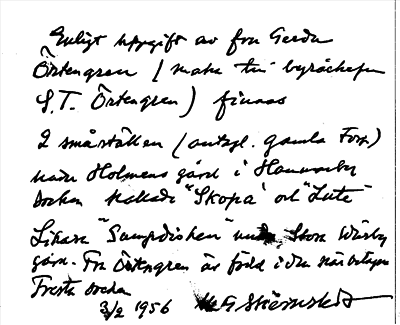 Enligt uppgift av fru Gerda
Örtengren (maka till byråchefen
S.T. Örtengren) finnas
2 småställen (antagl. gamla Torp)
under Holmens gård i Hammarby
socken kallade "Skopa" och "Lute"
Likaså "Sampedishen" under Stora Wäsby
gård. Fru Örtengren är född i den närbelägna
Fresta socken
3/2 1956